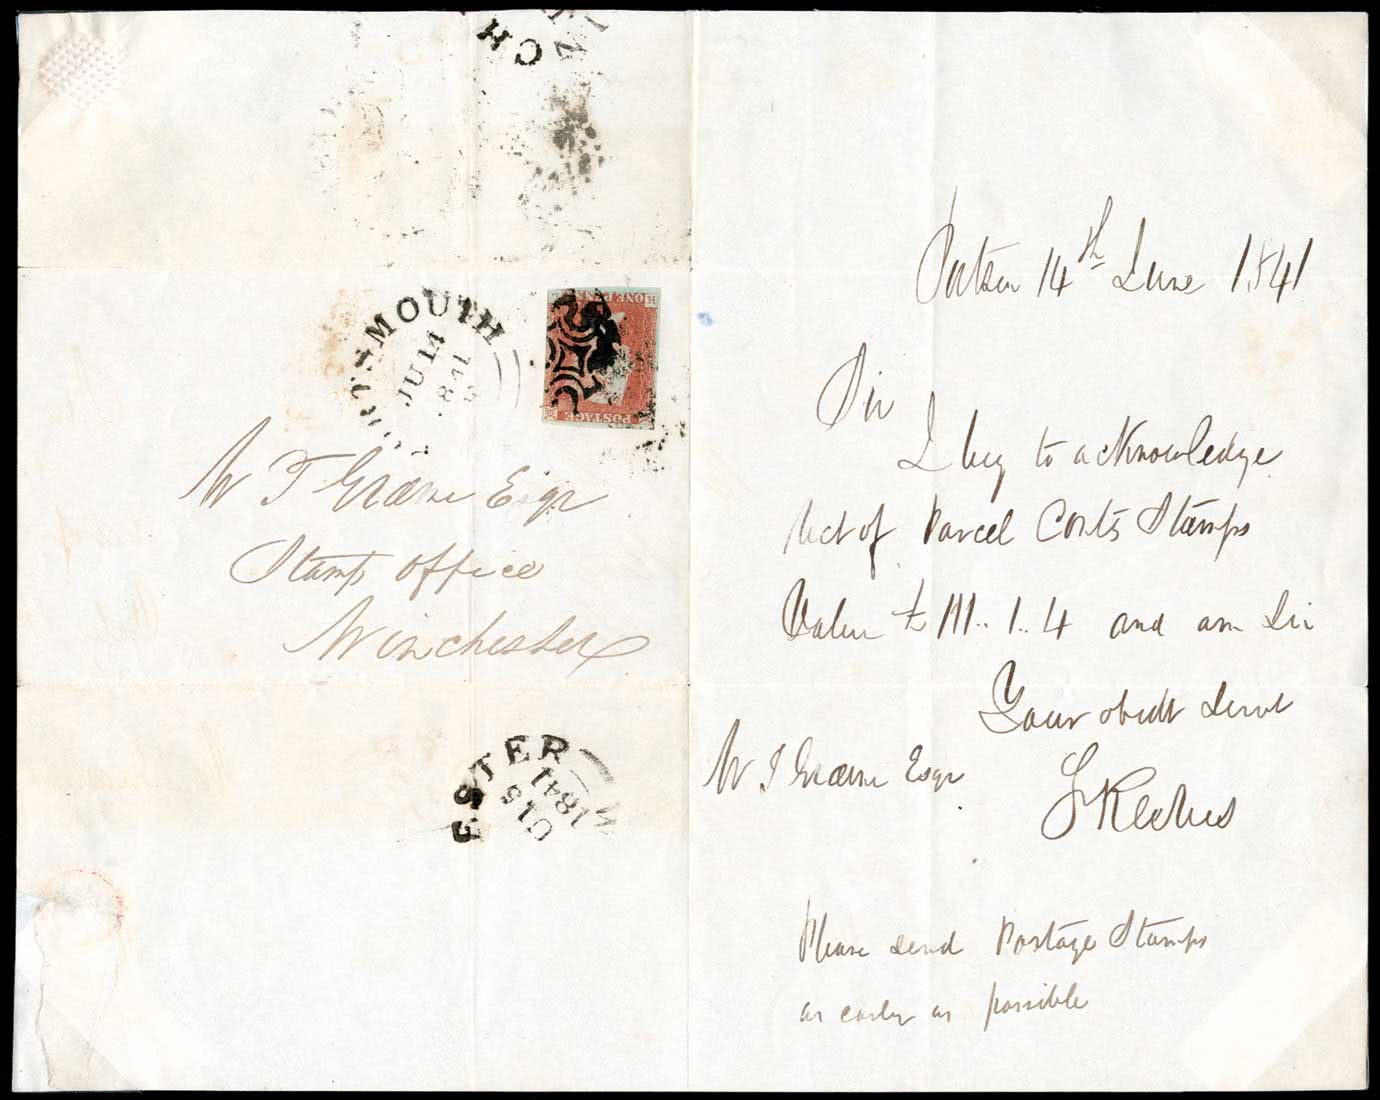 NCH
PORTSMOUTH
JU 14
1841
ONE PENNY
H
POSTAGE
W T Graeme Esqr
Stamp office
Winchester
ESTER W
U15
1841
14th June 1841
Sir
I beg to acknowledge
of Parcel Contg Stamps
Value £ 111..1..4 and am Sir
Your obedt Servt
W T Graeme Esqr
Please send Postage Stamps
as early as possible